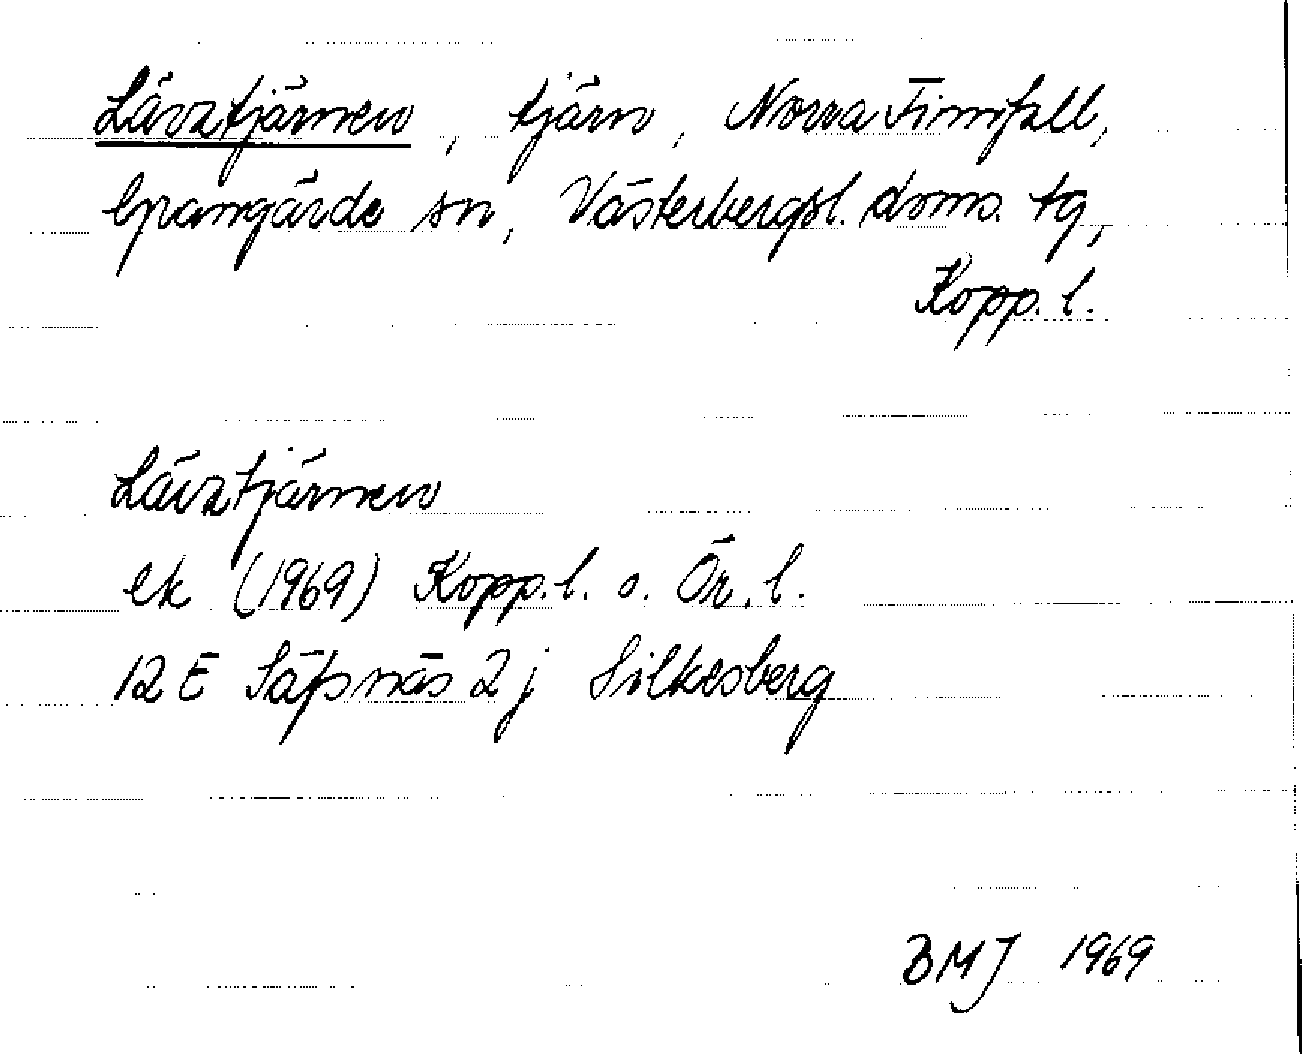 Lävatjärnen, tjärn, Norra Finnfall,
Grangärde sn, Västerbergsl. doms. tg,
Kopp. l.
Lävatjärnen
ek (1969) Kopp. l. o. Ör. l.
12 E Säfsnäs 2 j Silkesberg
BMJ 1969